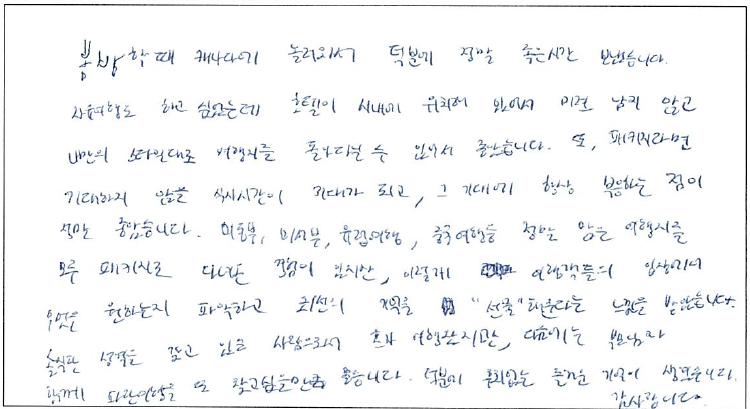 봄방학때 캐나다에 놀러와서 덕분에 정말 좋은시간 보냈습니다.
자유여행도 하고 싶었는데 호텔이 시내에 위치해 있어서 미련 남지 않고
나만의 스타일대로 여행지를 돌아다닐 수 있어서 좋았습니다. 또, 패키지라면
기대하지 않을 식사시간이 기대가 되고, 그 기대에 항상 부응하는 점이
정말 좋았습니다. 미동부, 미서부, 유럽여행, 중국여행등 정말 많은 여행지를
모두 패키지로 다녀본 경험이 있지만, 이렇게 여행객들의 입장에서
무엇을 원하는지 파악하고 최선의 기억을 "선물" 해준다는 느낌을 받았습니다.
솔직한 성격을 갖고 있는 사람으로서 혼자 여행왔지만, 다음에는 부모님과
함께 파란여행을 또 찾고싶을만큼 좋습니다. 덕분에 후회없는 즐거운 기억이 생겼습니다.
감사합니다.